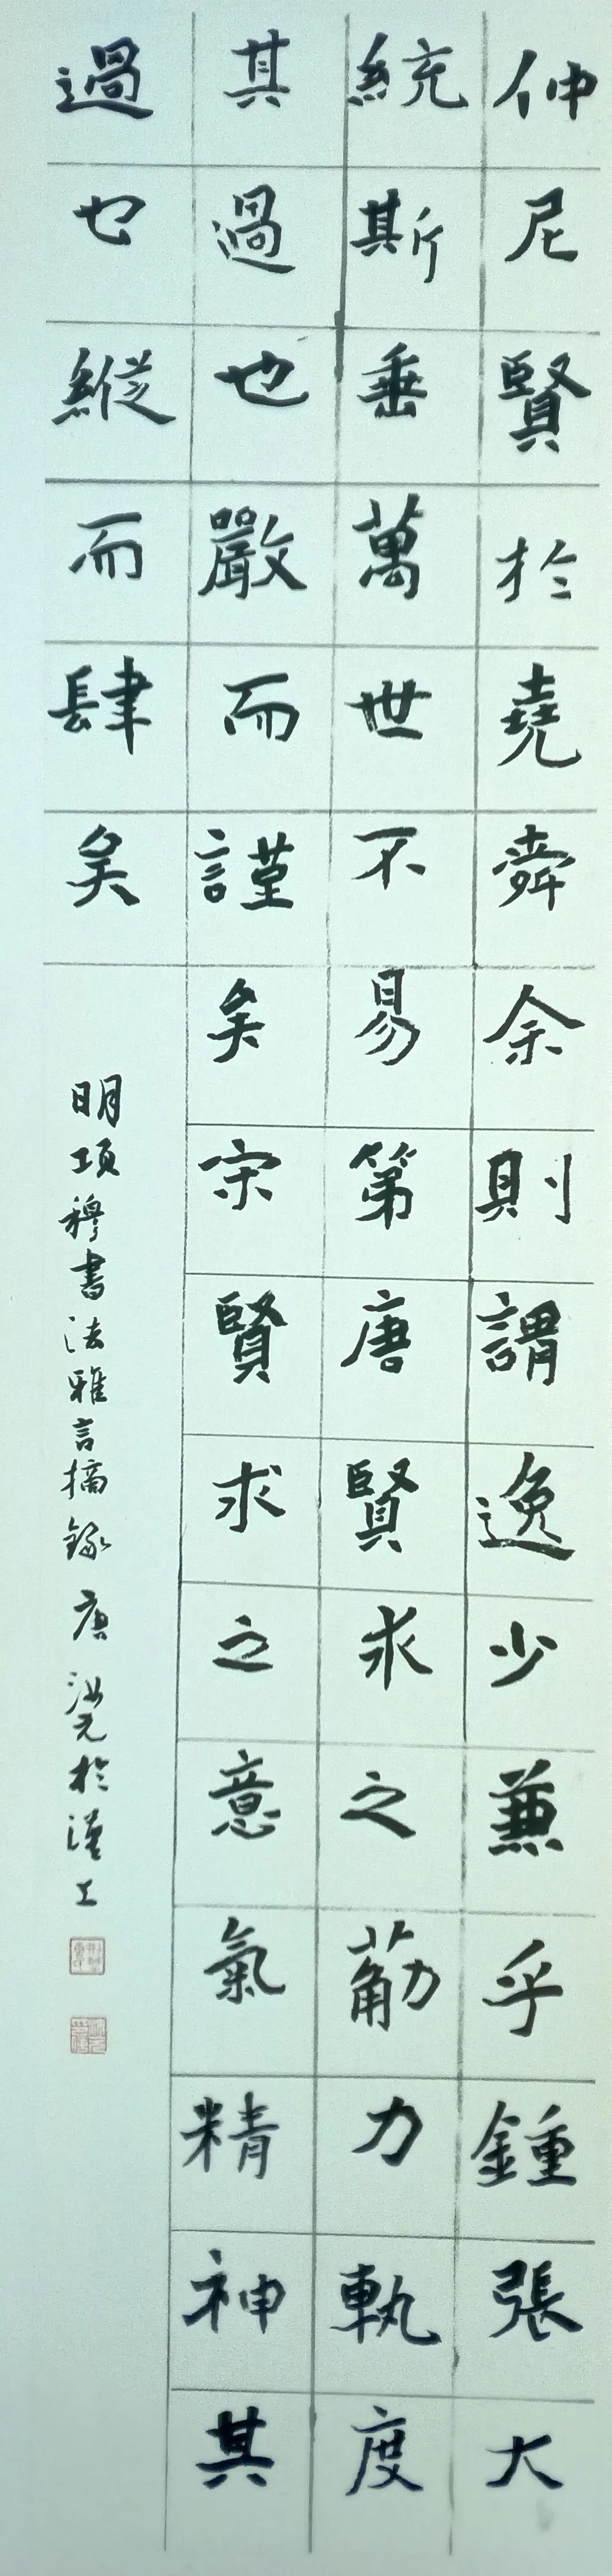 仲尼賢於堯舜余則謂逸少兼乎鍾張大
統斯垂萬世不易第唐賢求之筋力軌度
其過也嚴而謹矣宋賢求之意氣精神其
過也縱而肆矣
明項穆書法雅言摘錄 唐 於漢上